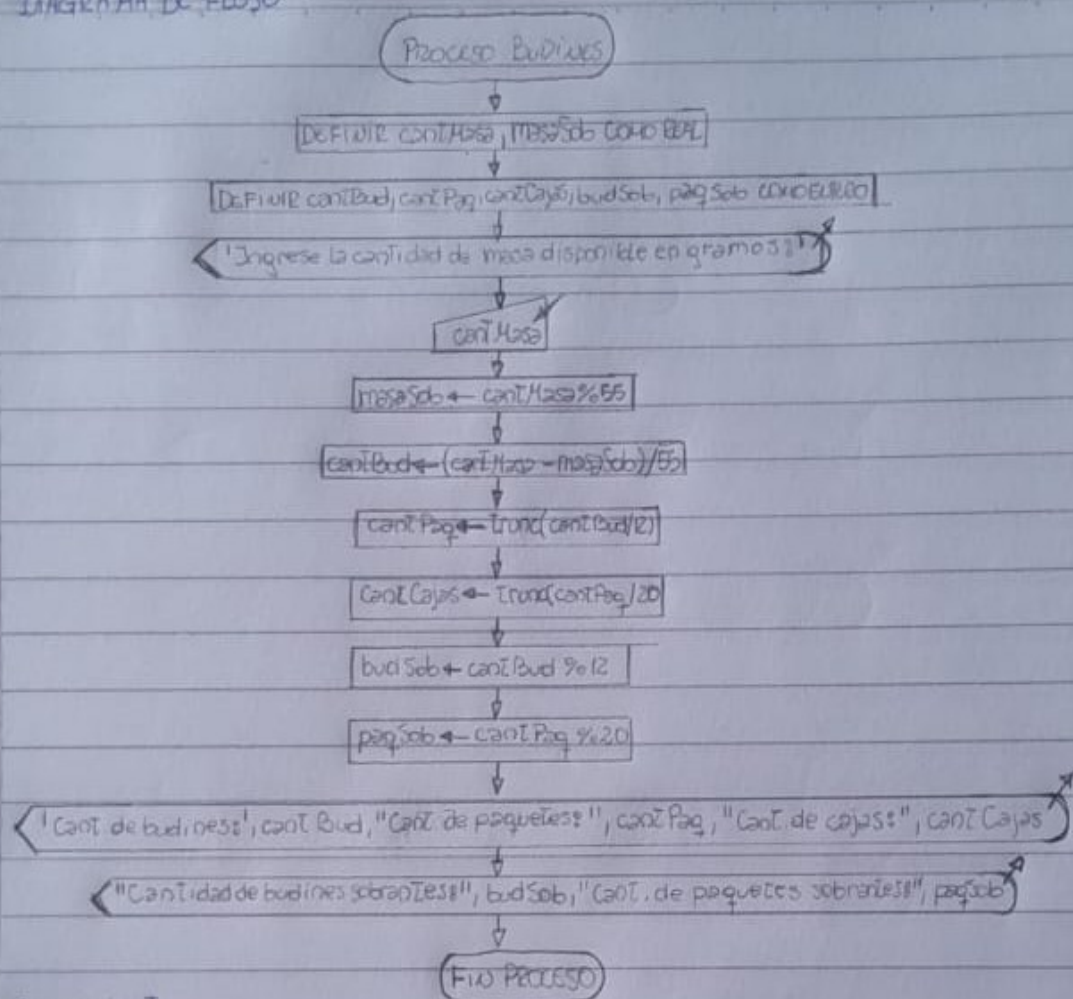 DIAGRAMA DE FLUJO
PROCESO BUDINES
DEFINIR cantMasa, masaSob COMO REAL
DEFINIR cantBud, cantPaq, cantCajas, budSob, paqSob COMO ENTERO
'Ingrese la cantidad de masa disponible en gramos:'
cantMasa
masaSob ← cantMasa%55
cantBud ← (cantMasa - masaSob)/55
cantPaq ← trunc(cantBud/12)
cantCajas ← trunc(cantPaq/20)
budSob ← cantBud %12
paqSob ← cantPaq %20
'Cant de budines:', cantBud, "Cant de paquetes:", cantPaq, "Cant. de cajas:", cantCajas
"Cantidad de budines sobrantes:", budSob, "Cant. de paquetes sobrantes:", paqSob
FIN PROCESO